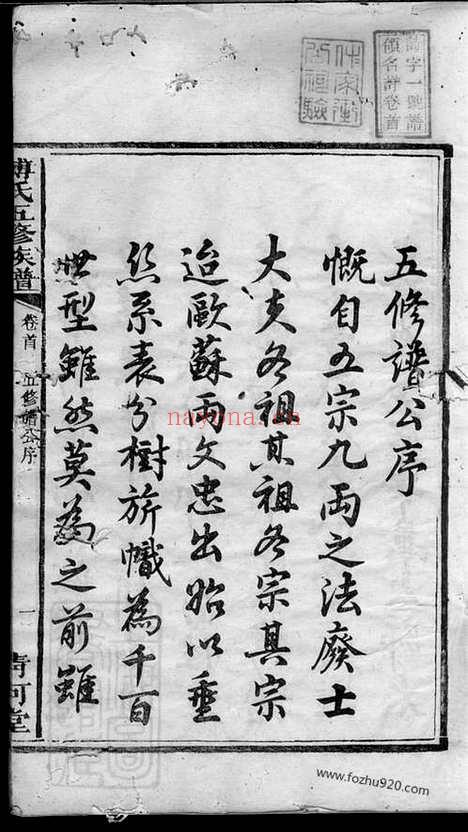 五修譜公序
慨自五宗九兩之法廢士
大夫各祖其祖各宗其宗
迨歐蘇兩文忠出始以垂
絲系表分樹旂幟為千百
世型雖然莫為之前雖
傅氏五修族譜
卷首
五修譜公序
一
清河堂
字一號譜
領名謄卷首
nayona.cn
www.fozhu920.com